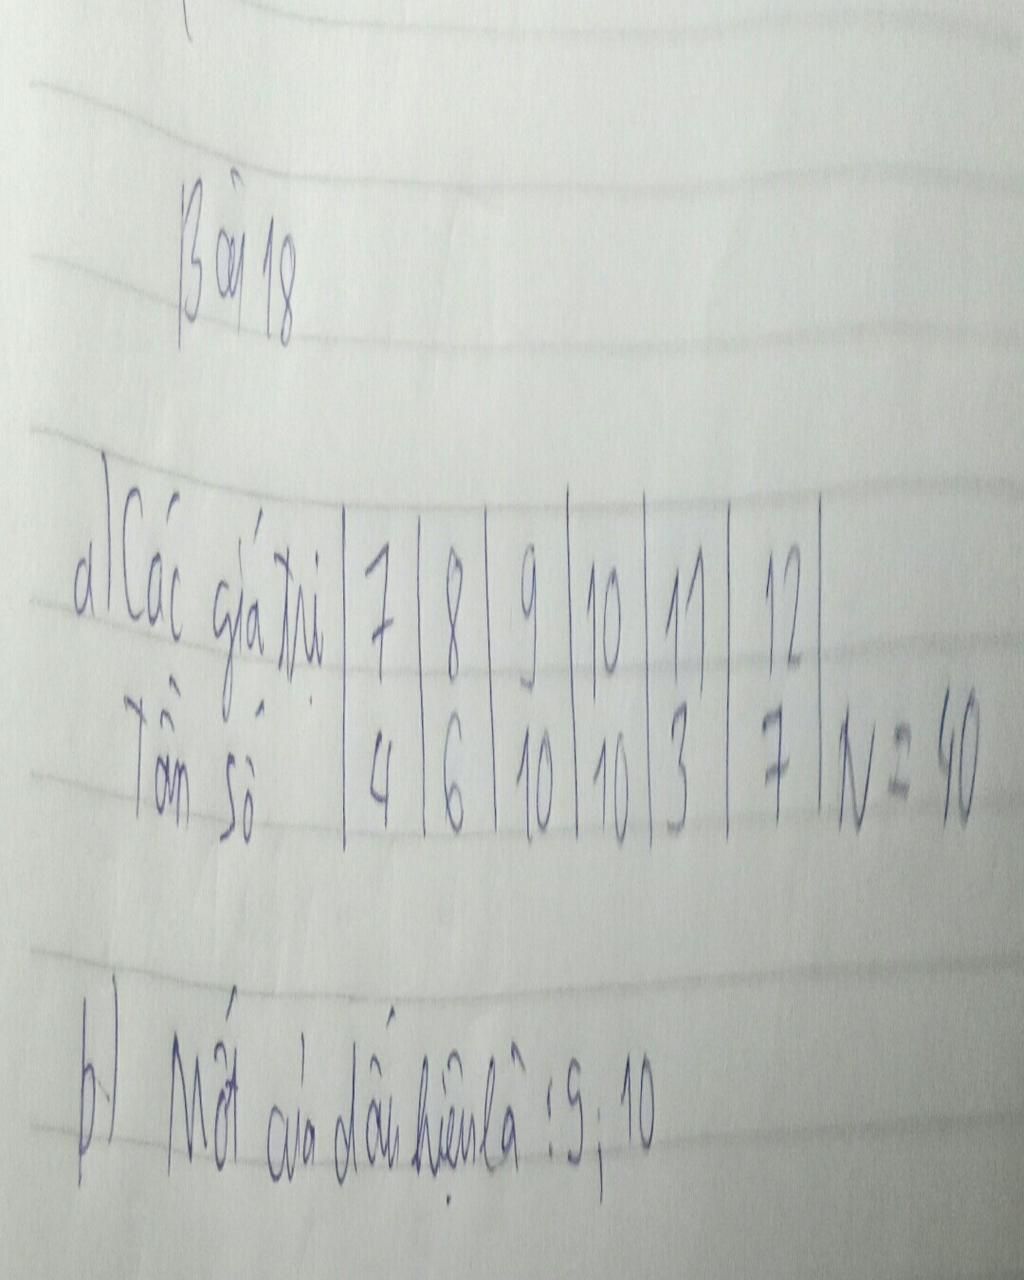 Bài 18
a) Các giá trị | 7 | 8 | 9 | 10 | 11 | 12 |
Tần số | 4 | 6 | 10 | 10 | 3 | 7 | N = 40
b) Mốt của dấu hiệu là : 9 ; 10